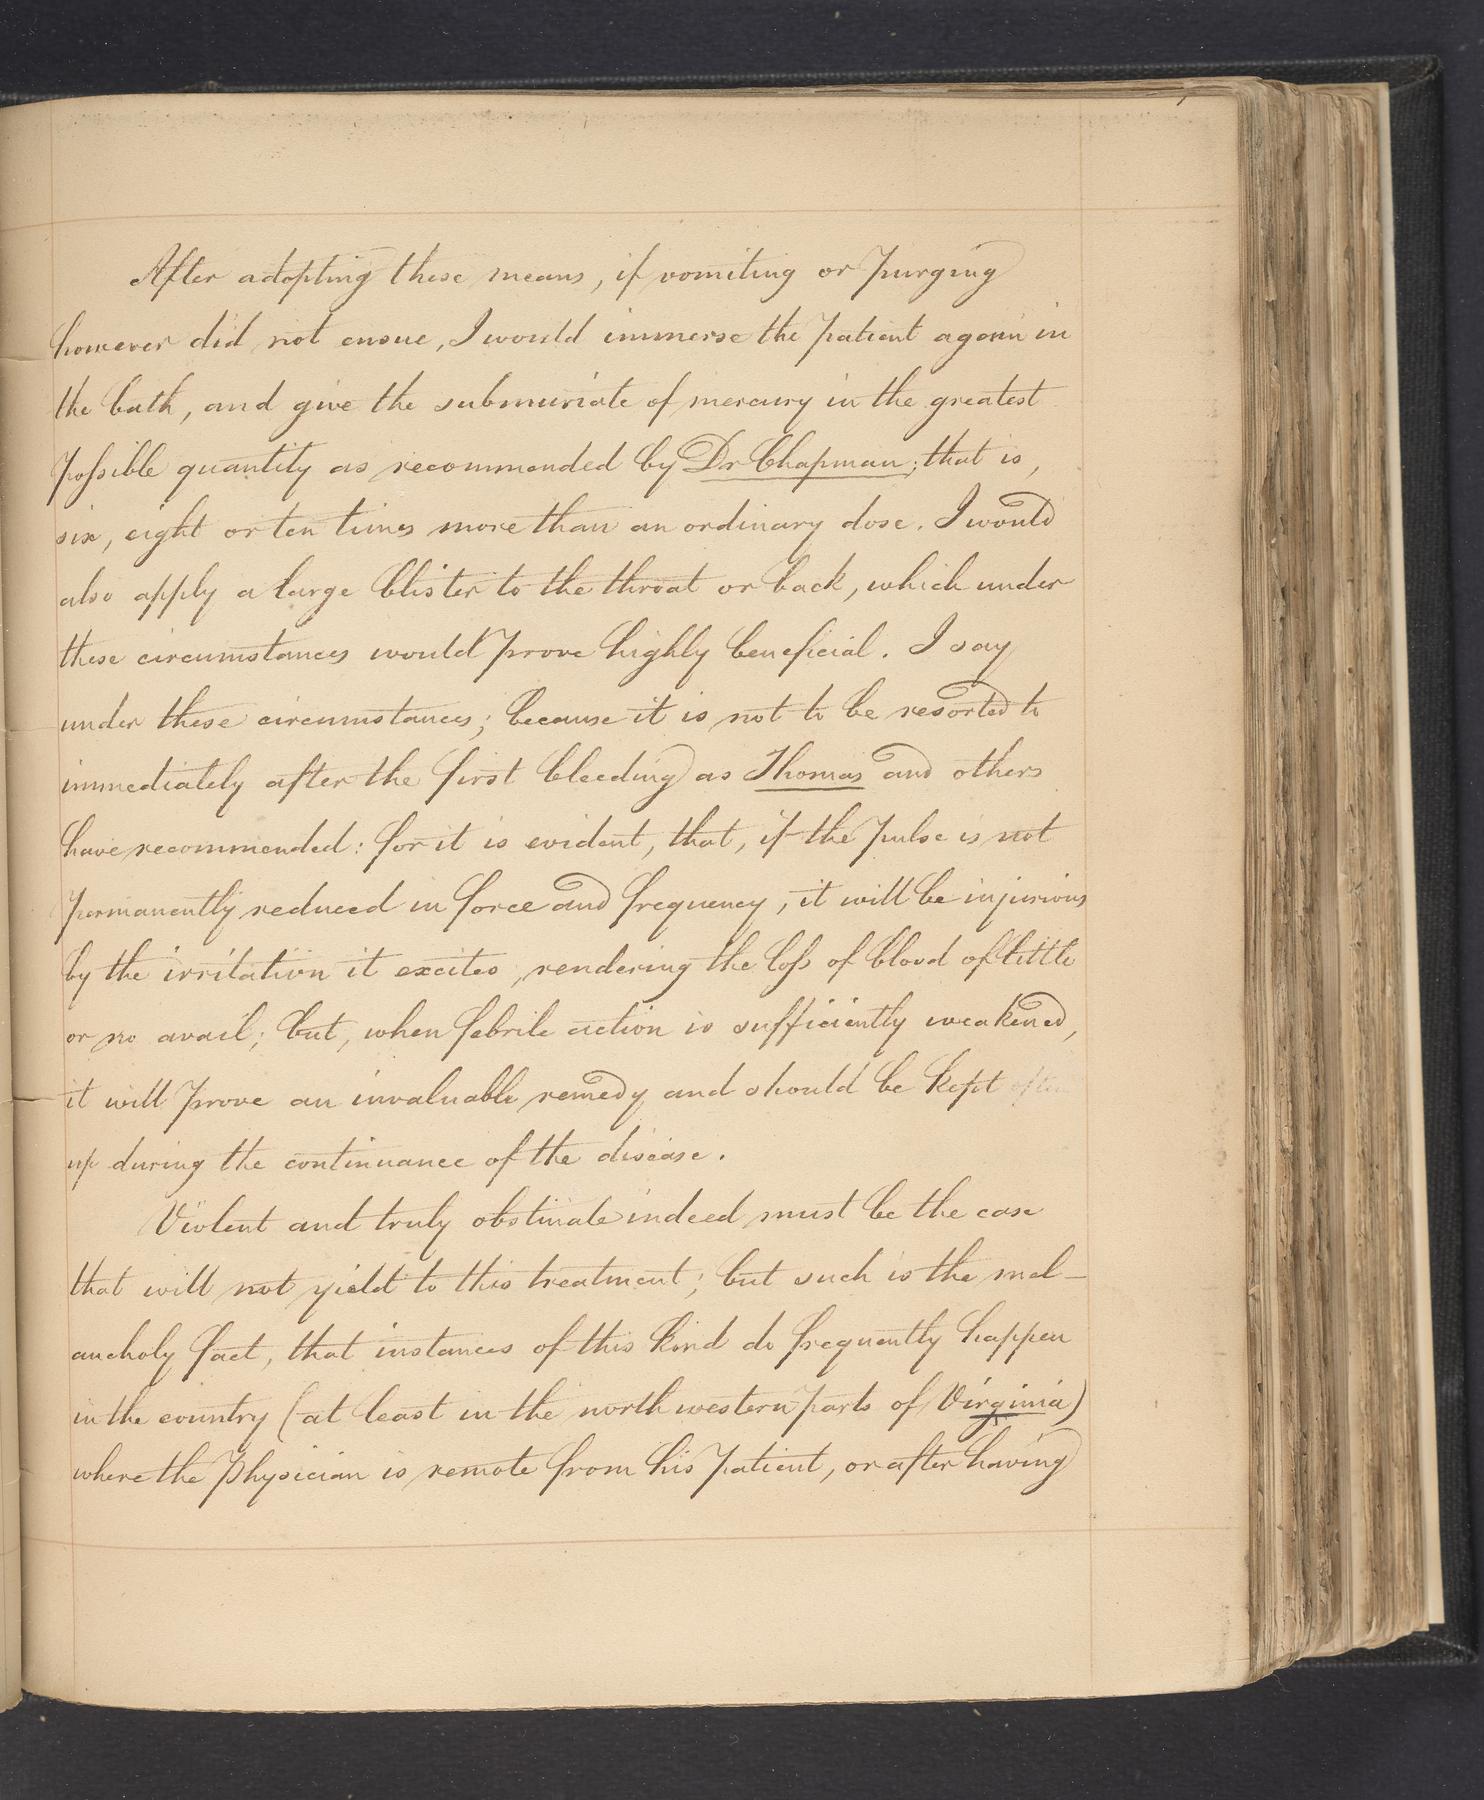 After adopting these means, if vomiting or purging
however did not ensue, I would immerse the patient again in
the bath, and give the submuriate of mercury in the greatest
possible quantity as recommended by Dr Chapman; that is,
six, eight or ten times more than an ordinary dose. I would
also apply a large blister to the throat or back, which under
these circumstances would prove highly beneficial. I say
under these circumstances; because it is not to be resorted to
immediately after the first bleeding as Thomas and others
have recommended: for it is evident, that, if the pulse is not
permanently reduced in force and frequency, it will be injurious
by the irritation it excites, rendering the loss of blood of little
or no avail; but, when febrile action is sufficiently weakened,
it will prove an invaluable remedy and should be kept
up during the continuance of the disease.
Violent and truly obstinate indeed must be the case
that will not yield to this treatment; but such is the mel-
ancholy fact, that instances of this kind do frequently happen
in the country (at least in the north western parts of Virginia)
where the Physician is remote from his patient, or after having